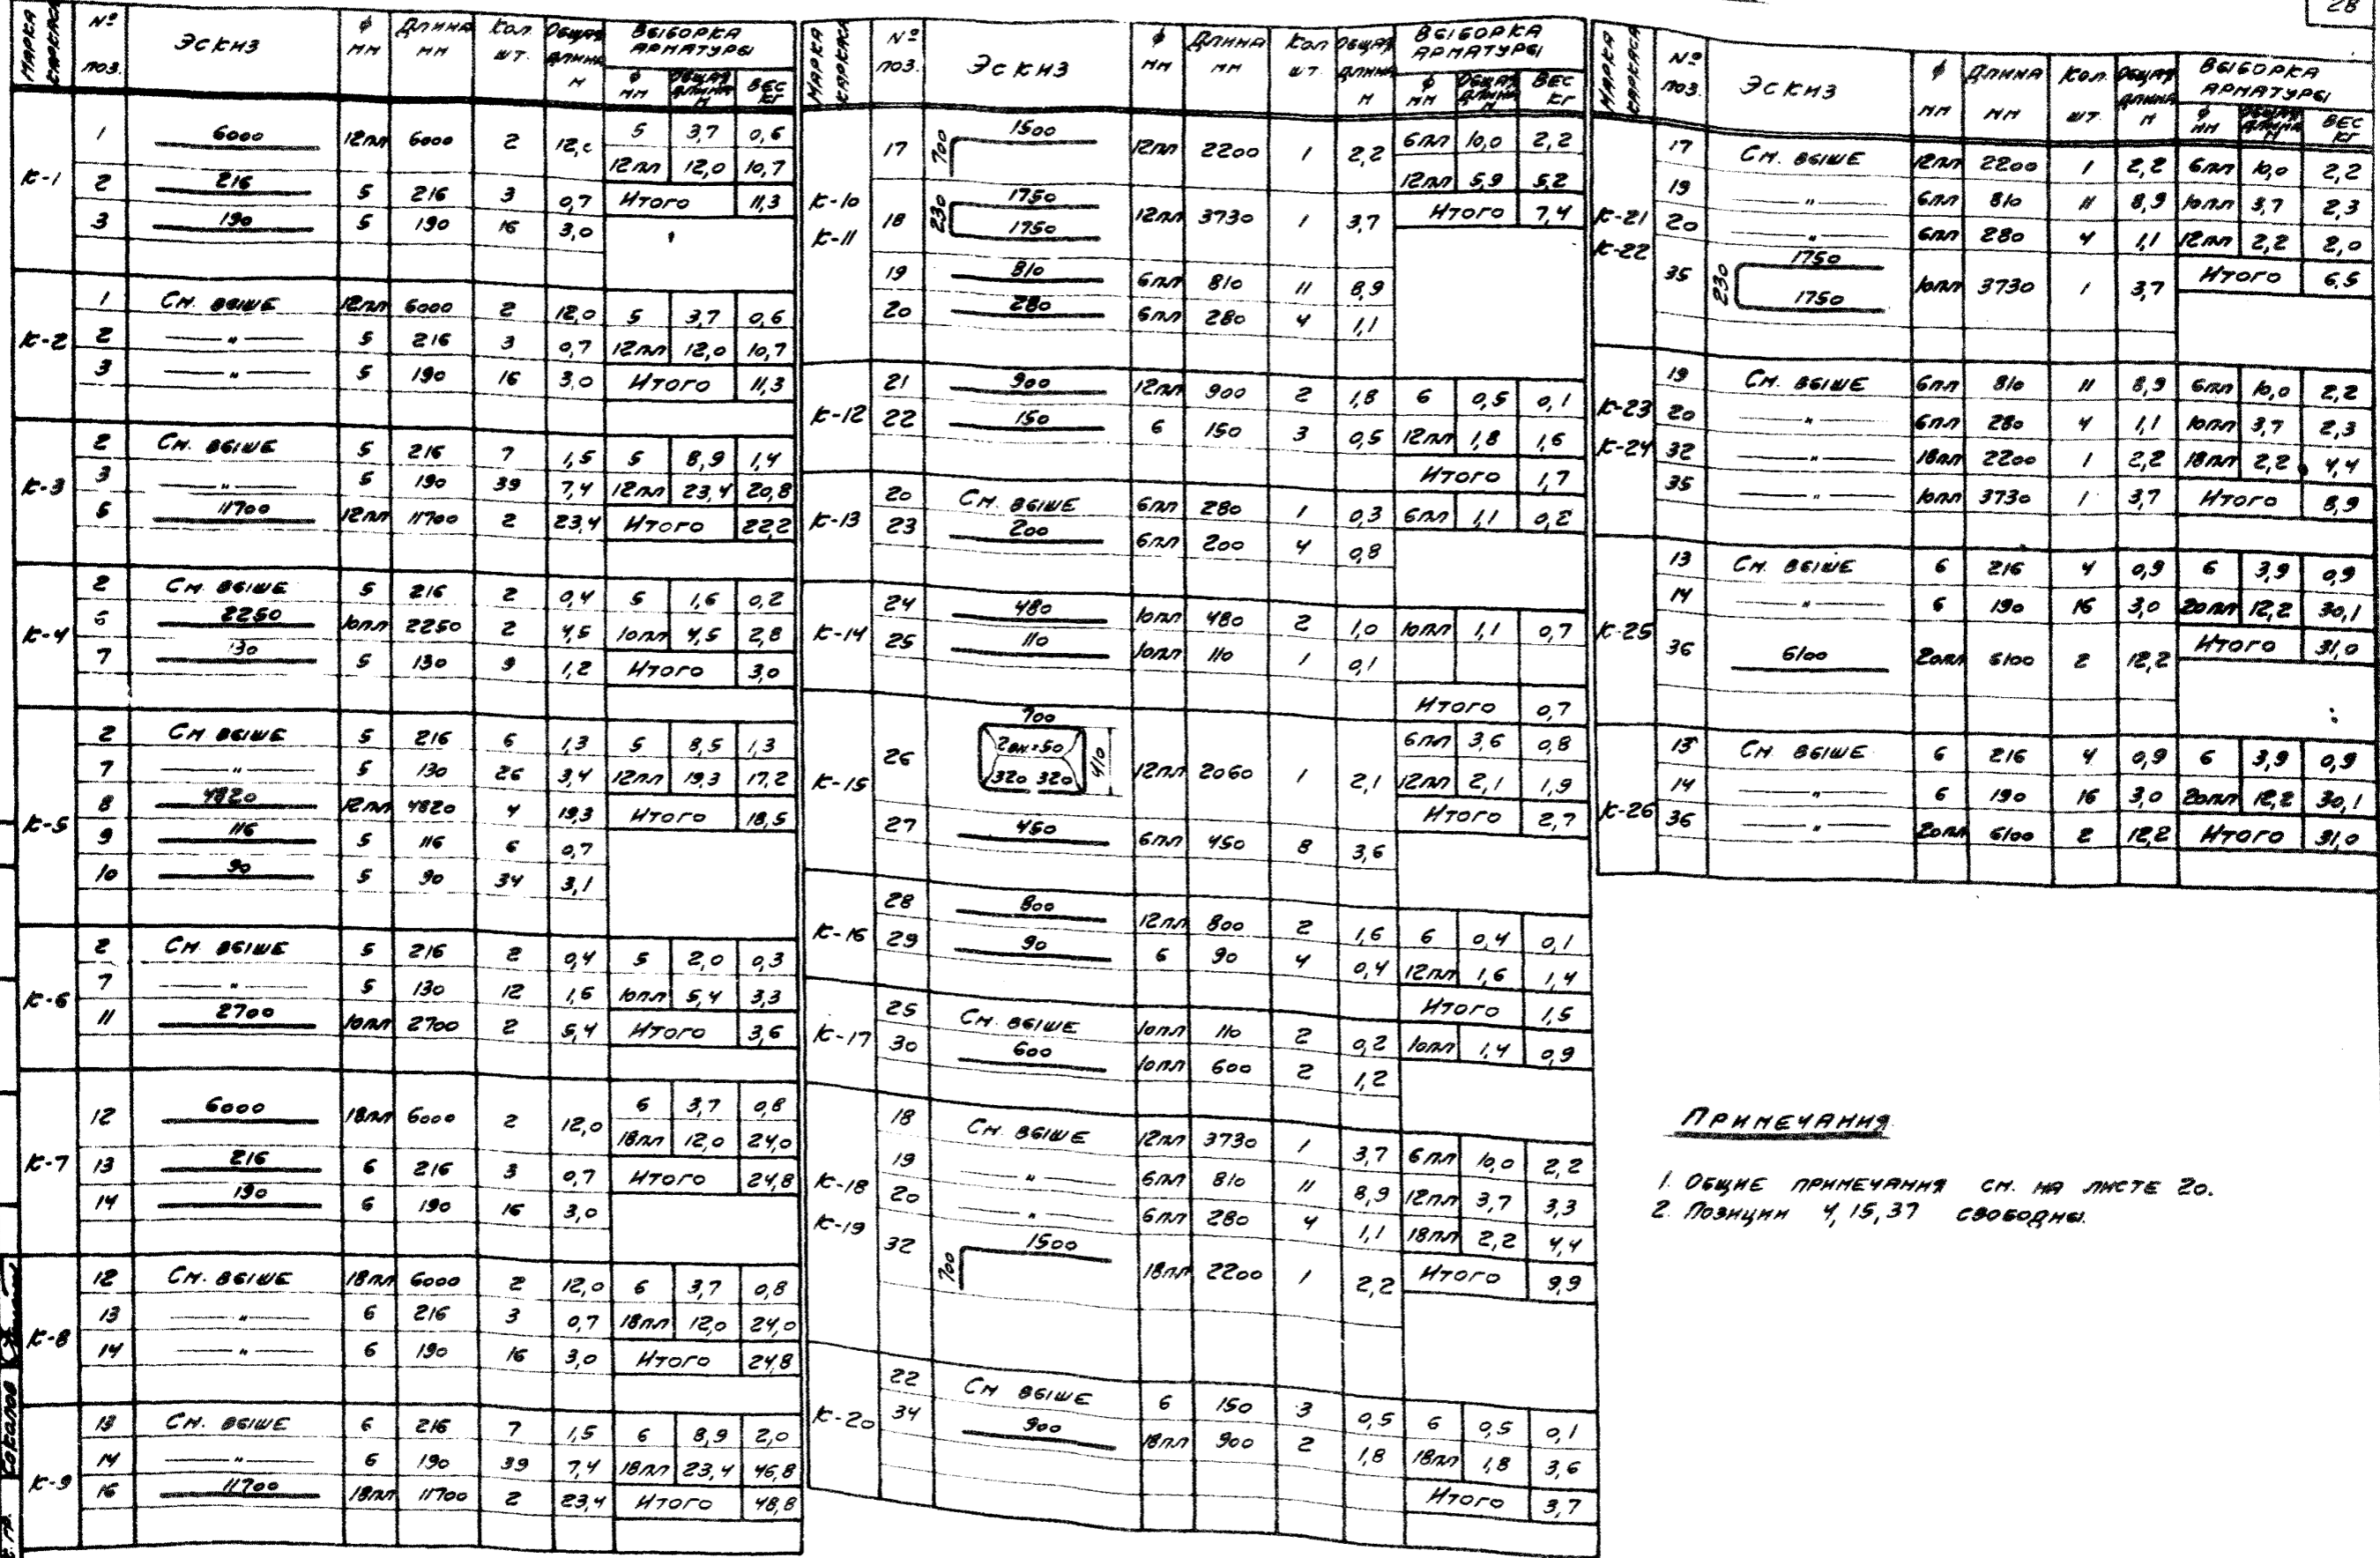 28
МАРКА КАРКАСА № ПОЗ. ЭСКИЗ ϕ ММ ДЛИНА ММ КОЛ. ШТ. ОБЩАЯ ДЛИНА М ВЫБОРКА АРМАТУРЫ ϕ ММ ОБЩАЯ ДЛИНА М ВЕС КГ
К-1
1 6000 12пл 6000 2 12,0 5 3,7 0,6
12пл 12,0 10,7
2 216 5 216 3 0,7 Итого 11,3
3 190 5 190 16 3,0
К-2
1 См. выше 12пл 6000 2 12,0 5 3,7 0,6
2 — " — 5 216 3 0,7 12пл 12,0 10,7
3 — " — 5 190 16 3,0 Итого 11,3
К-3
2 См. выше 5 216 7 1,5 5 8,9 1,4
3 — " — 5 190 39 7,4 12пл 23,4 20,8
5 11700 12пл 11700 2 23,4 Итого 22,2
К-4
2 См. выше 5 216 2 0,4 5 1,6 0,2
6 2250 10пл 2250 2 4,5 10пл 4,5 2,8
7 130 5 130 9 1,2 Итого 3,0
К-5
2 См выше 5 216 6 1,3 5 8,5 1,3
7 — " — 5 130 26 3,4 12пл 19,3 17,2
8 4820 12пл 4820 4 19,3 Итого 18,5
9 116 5 116 6 0,7
10 90 5 90 34 3,1
К-6
2 См. выше 5 216 2 0,4 5 2,0 0,3
7 — " — 5 130 12 1,6 10пл 5,4 3,3
11 2700 10пл 2700 2 5,4 Итого 3,6
К-7
12 6000 18пл 6000 2 12,0 6 3,7 0,8
18пл 12,0 24,0
13 216 6 216 3 0,7 Итого 24,8
14 190 6 190 16 3,0
К-8
12 См. выше 18пл 6000 2 12,0 6 3,7 0,8
13 — " — 6 216 3 0,7 18пл 12,0 24,0
14 — " — 6 190 16 3,0 Итого 24,8
К-9
13 См. выше 6 216 7 1,5 6 8,9 2,0
14 — " — 6 190 39 7,4 18пл 23,4 46,8
16 11700 18пл 11700 2 23,4 Итого 48,8
МАРКА КАРКАСА № ПОЗ. ЭСКИЗ ϕ ММ ДЛИНА ММ КОЛ ШТ. ОБЩАЯ ДЛИНА М ВЫБОРКА АРМАТУРЫ ϕ ММ ОБЩАЯ ДЛИНА М ВЕС КГ
К-10
К-11
17 700 1500 12пл 2200 1 2,2 6пл 10,0 2,2
12пл 5,9 5,2
18 230 1750 1750 12пл 3730 1 3,7 Итого 7,4
19 810 6пл 810 11 8,9
20 280 6пл 280 4 1,1
К-12
21 900 12пл 900 2 1,8 6 0,5 0,1
22 150 6 150 3 0,5 12пл 1,8 1,6
Итого 1,7
К-13
20 См. выше 6пл 280 1 0,3 6пл 1,1 0,2
23 200 6пл 200 4 0,8
К-14
24 480 10пл 480 2 1,0 10пл 1,1 0,7
25 110 10пл 110 1 0,1
Итого 0,7
К-15
26 700 2вн=50 320 320 410 12пл 2060 1 2,1 6пл 3,6 0,8
12пл 2,1 1,9
Итого 2,7
27 450 6пл 450 8 3,6
К-16
28 800 12пл 800 2 1,6 6 0,4 0,1
29 90 6 90 4 0,4 12пл 1,6 1,4
Итого 1,5
К-17
25 См. выше 10пл 110 2 0,2 10пл 1,4 0,9
30 600 10пл 600 2 1,2
К-18
К-19
18 См. выше 12пл 3730 1 3,7 6пл 10,0 2,2
19 — " — 6пл 810 11 8,9 12пл 3,7 3,3
20 — " — 6пл 280 4 1,1 18пл 2,2 4,4
32 700 1500 18пл 2200 1 2,2 Итого 9,9
К-20
22 См выше 6 150 3 0,5 6 0,5 0,1
34 900 18пл 900 2 1,8 18пл 1,8 3,6
Итого 3,7
МАРКА КАРКАСА № ПОЗ. ЭСКИЗ ϕ ММ ДЛИНА ММ КОЛ. ШТ. ОБЩАЯ ДЛИНА М ВЫБОРКА АРМАТУРЫ ϕ ММ ОБЩАЯ ДЛИНА М ВЕС КГ
К-21
К-22
17 См. выше 12пл 2200 1 2,2 6пл 10,0 2,2
19 — " — 6пл 810 11 8,9 10пл 3,7 2,3
20 — " — 6пл 280 4 1,1 12пл 2,2 2,0
35 230 1750 1750 10пл 3730 1 3,7 Итого 6,5
К-23
К-24
19 См. выше 6пл 810 11 8,9 6пл 10,0 2,2
20 — " — 6пл 280 4 1,1 10пл 3,7 2,3
32 — " — 18пл 2200 1 2,2 18пл 2,2 4,4
35 — " — 10пл 3730 1 3,7 Итого 8,9
К-25
13 См. выше 6 216 4 0,9 6 3,9 0,9
14 — " — 6 190 16 3,0 20пл 12,2 30,1
36 6100 20пл 6100 2 12,2 Итого 31,0
К-26
13 См выше 6 216 4 0,9 6 3,9 0,9
14 — " — 6 190 16 3,0 20пл 12,2 30,1
36 — " — 20пл 6100 2 12,2 Итого 31,0
ПРИМЕЧАНИЯ
1. Общие примечания см. на листе 20.
2. Позиции 4, 15, 37 свободны.
Соколов